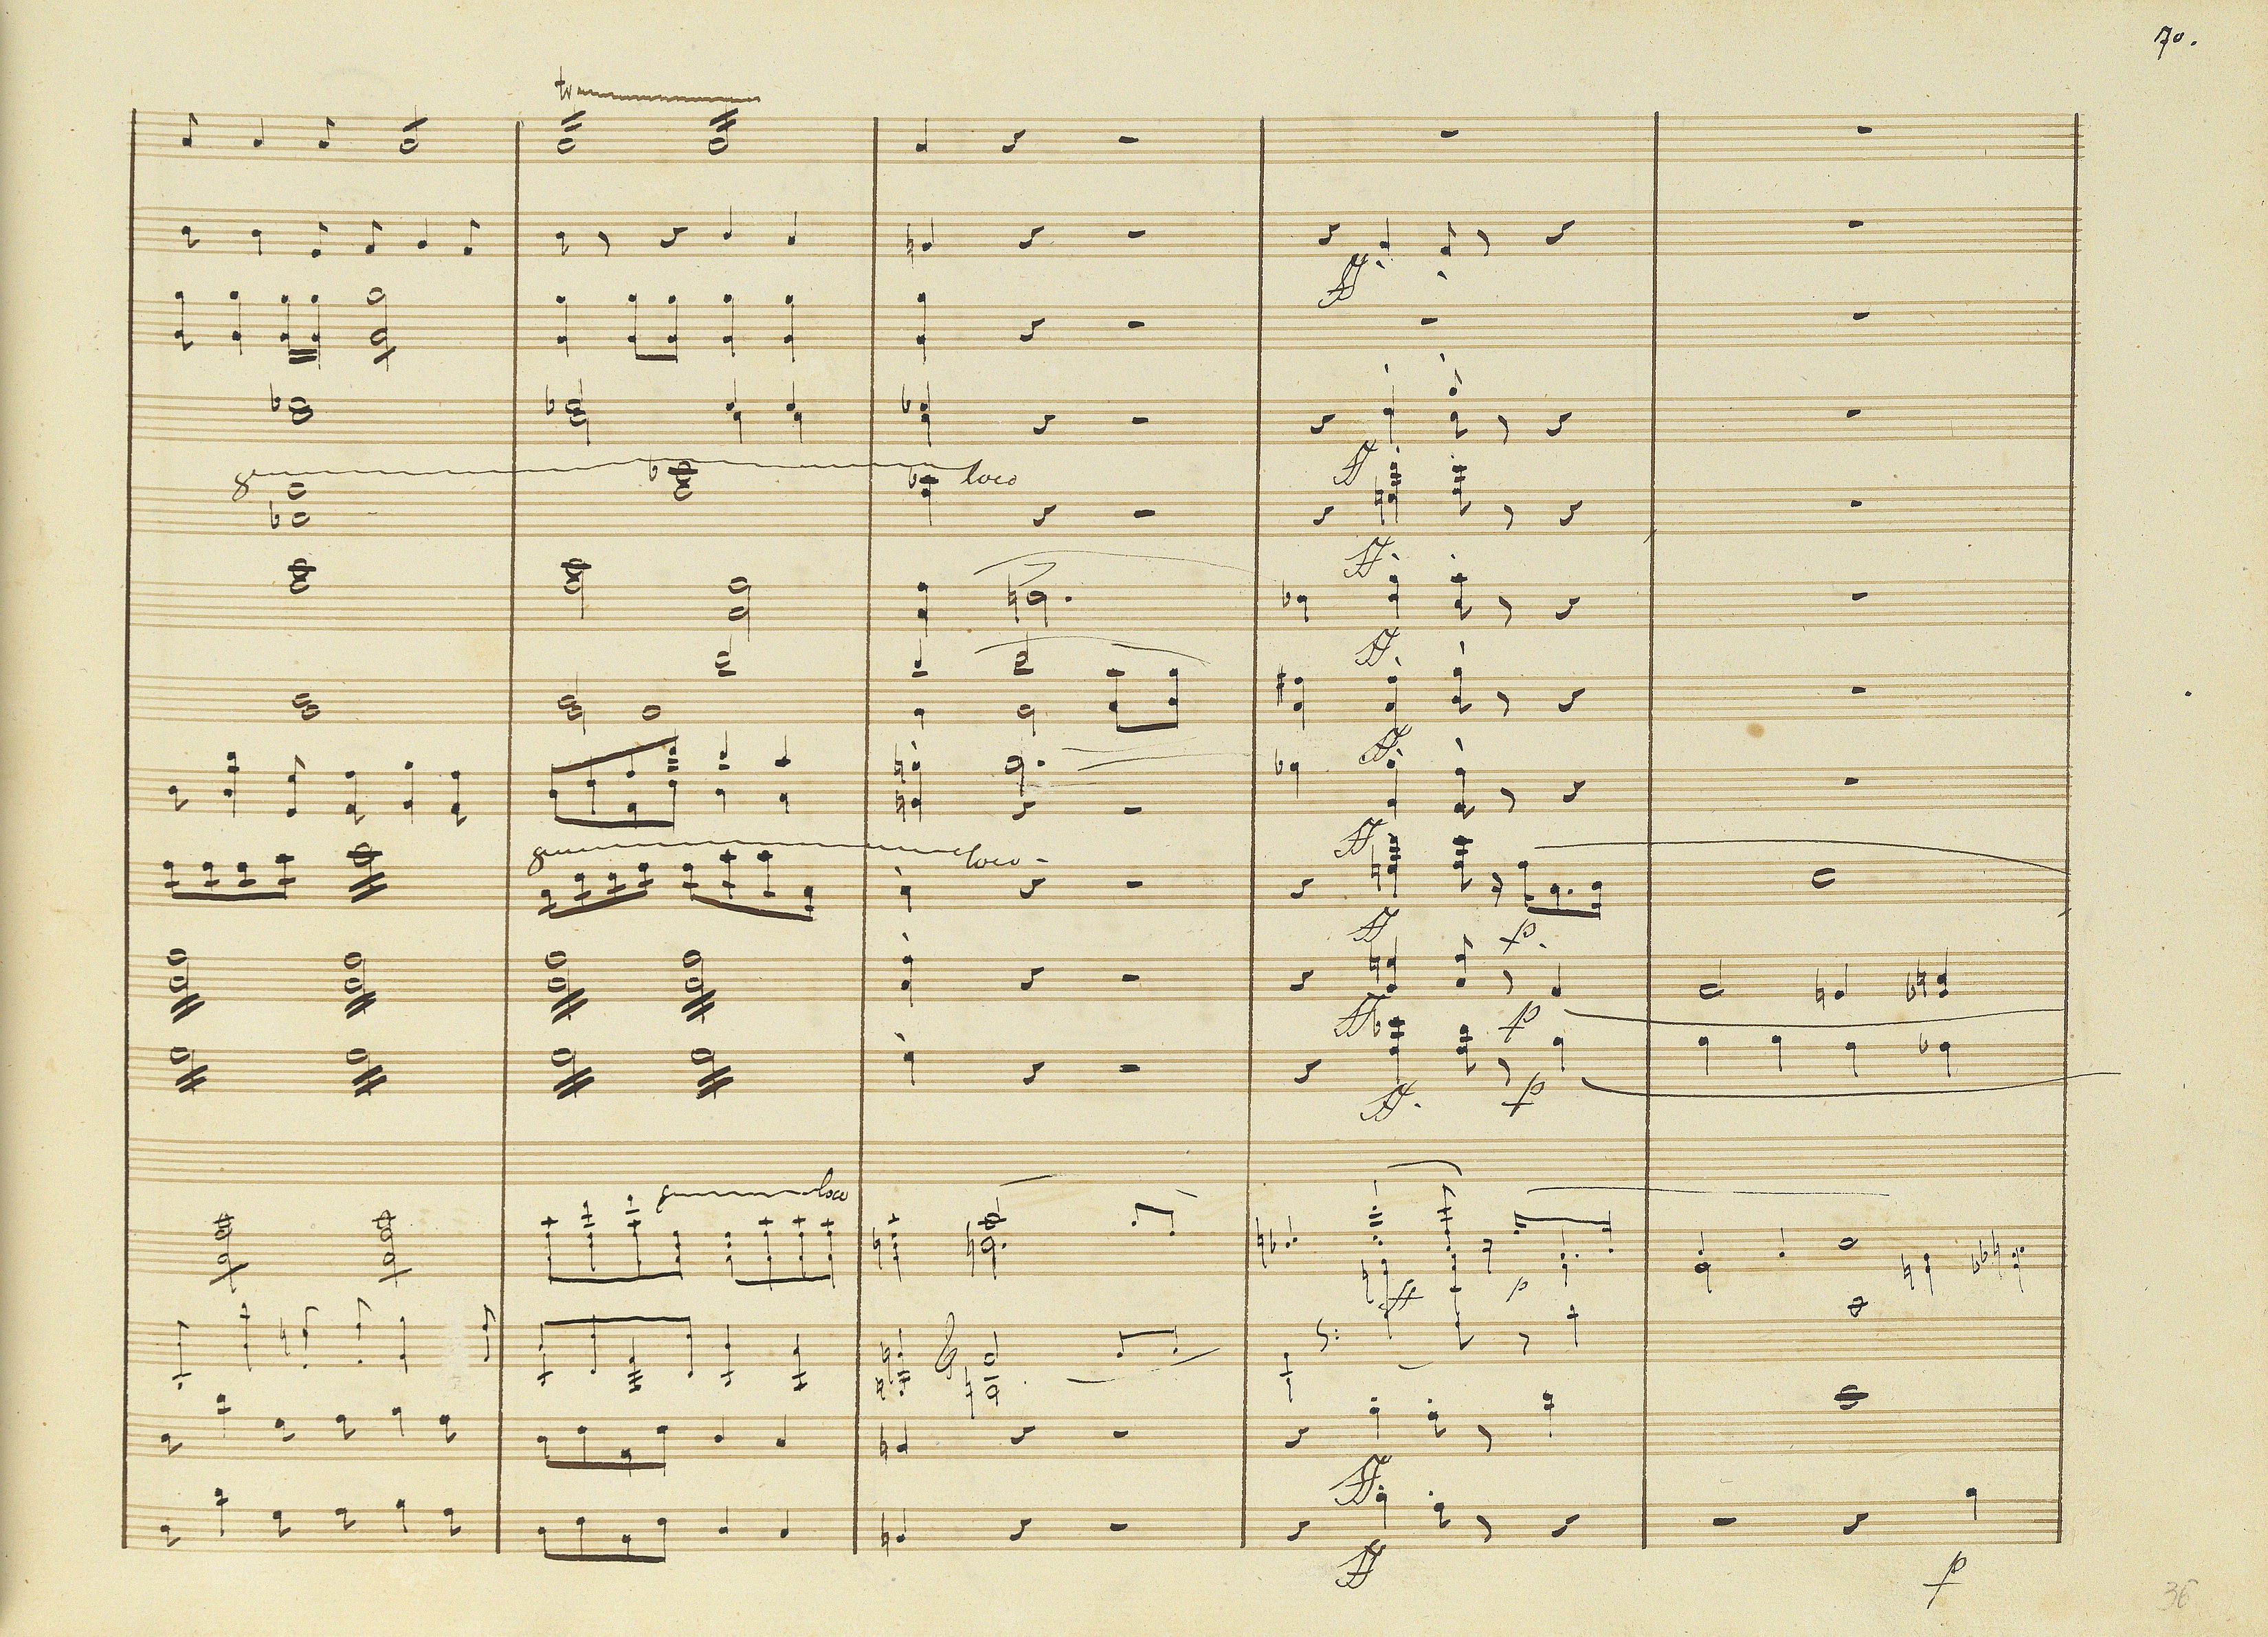 70.
tr
ff.
8 loco
ff
ff.
ff.
ff.
8 loco
ff
ff p.
ff p
ff. p
8 loco
ff p
ff.
ff
p
36